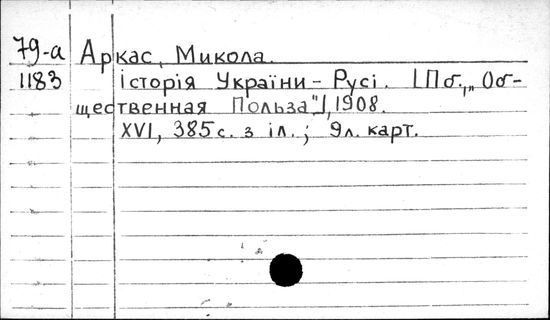 79-а Аркас, Микола.
1183 історія України – Русі. [Пб., „Об-
щественная Польза"], 1908.
XVI, 385 с. з іл.; 9 л. карт.